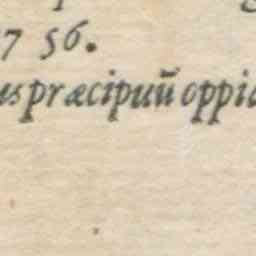 7 56.
us præcipuũ oppid